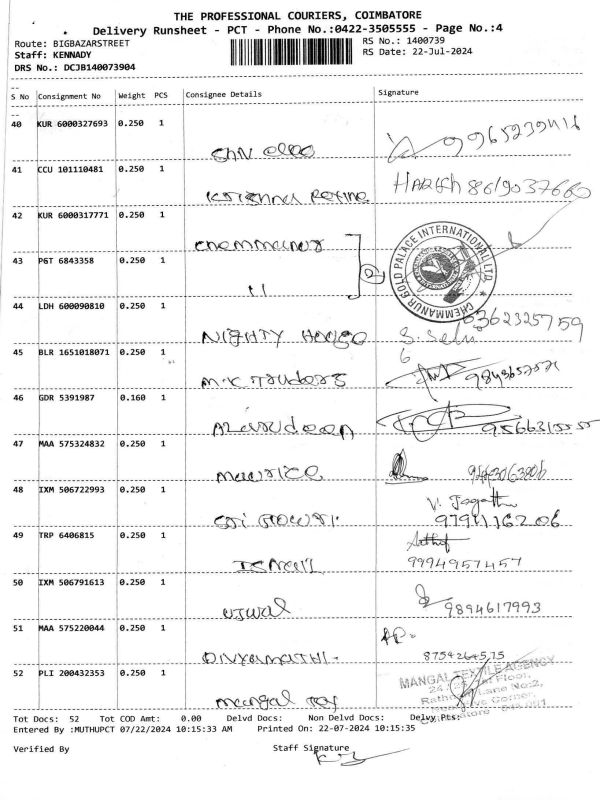 THE PROFESSIONAL COURIERS, COIMBATORE
Delivery Runsheet - PCT - Phone No.:0422-3505555 - Page No.:4
Route: BIGBAZARSTREET
RS No.: 1400739
Staff: KENNADY
RS Date: 22-Jul-2024
DRS No.: DCJB140073904
S No Consignment No Weight PCS Consignee Details Signature
40 KUR 6000327693 0.250 1
41 CCU 101110481 0.250 1
HARISH
42 KUR 6000317771 0.250 1
Chemmanur
43 PGT 6843358 0.250 1
11
CHEMMANUR GOLD PALACE INTERNATIONAL LTD.
44 LDH 600090810 0.250 1
NIGHTY HOUSE
45 BLR 1651018071 0.250 1
M.K Traders
46 GDR 5391987 0.160 1
Azarudeen
47 MAA 575324832 0.250 1
Maurice
48 IXM 506722993 0.250 1
V.
49 TRP 6406815 0.250 1
Ismail
9994957457
50 IXM 506791613 0.250 1
Ujwal
9894617993
51 MAA 575220044 0.250 1
Divyamathi.
8754264575
52 PLI 200432353 0.250 1
Mangal Tex
MANGAL TEXTILE AGENCY
Tot Docs: 52 Tot COD Amt: 0.00 Delvd Docs: Non Delvd Docs: Delvy Pts:
Entered By :MUTHUPCT 07/22/2024 10:15:33 AM Printed On: 22-07-2024 10:15:35
Verified By Staff Signature